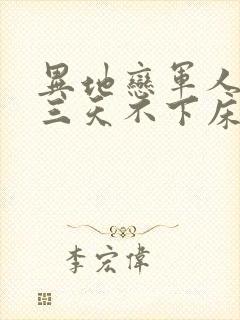 異地戀軍人
三天不下床
李宏偉